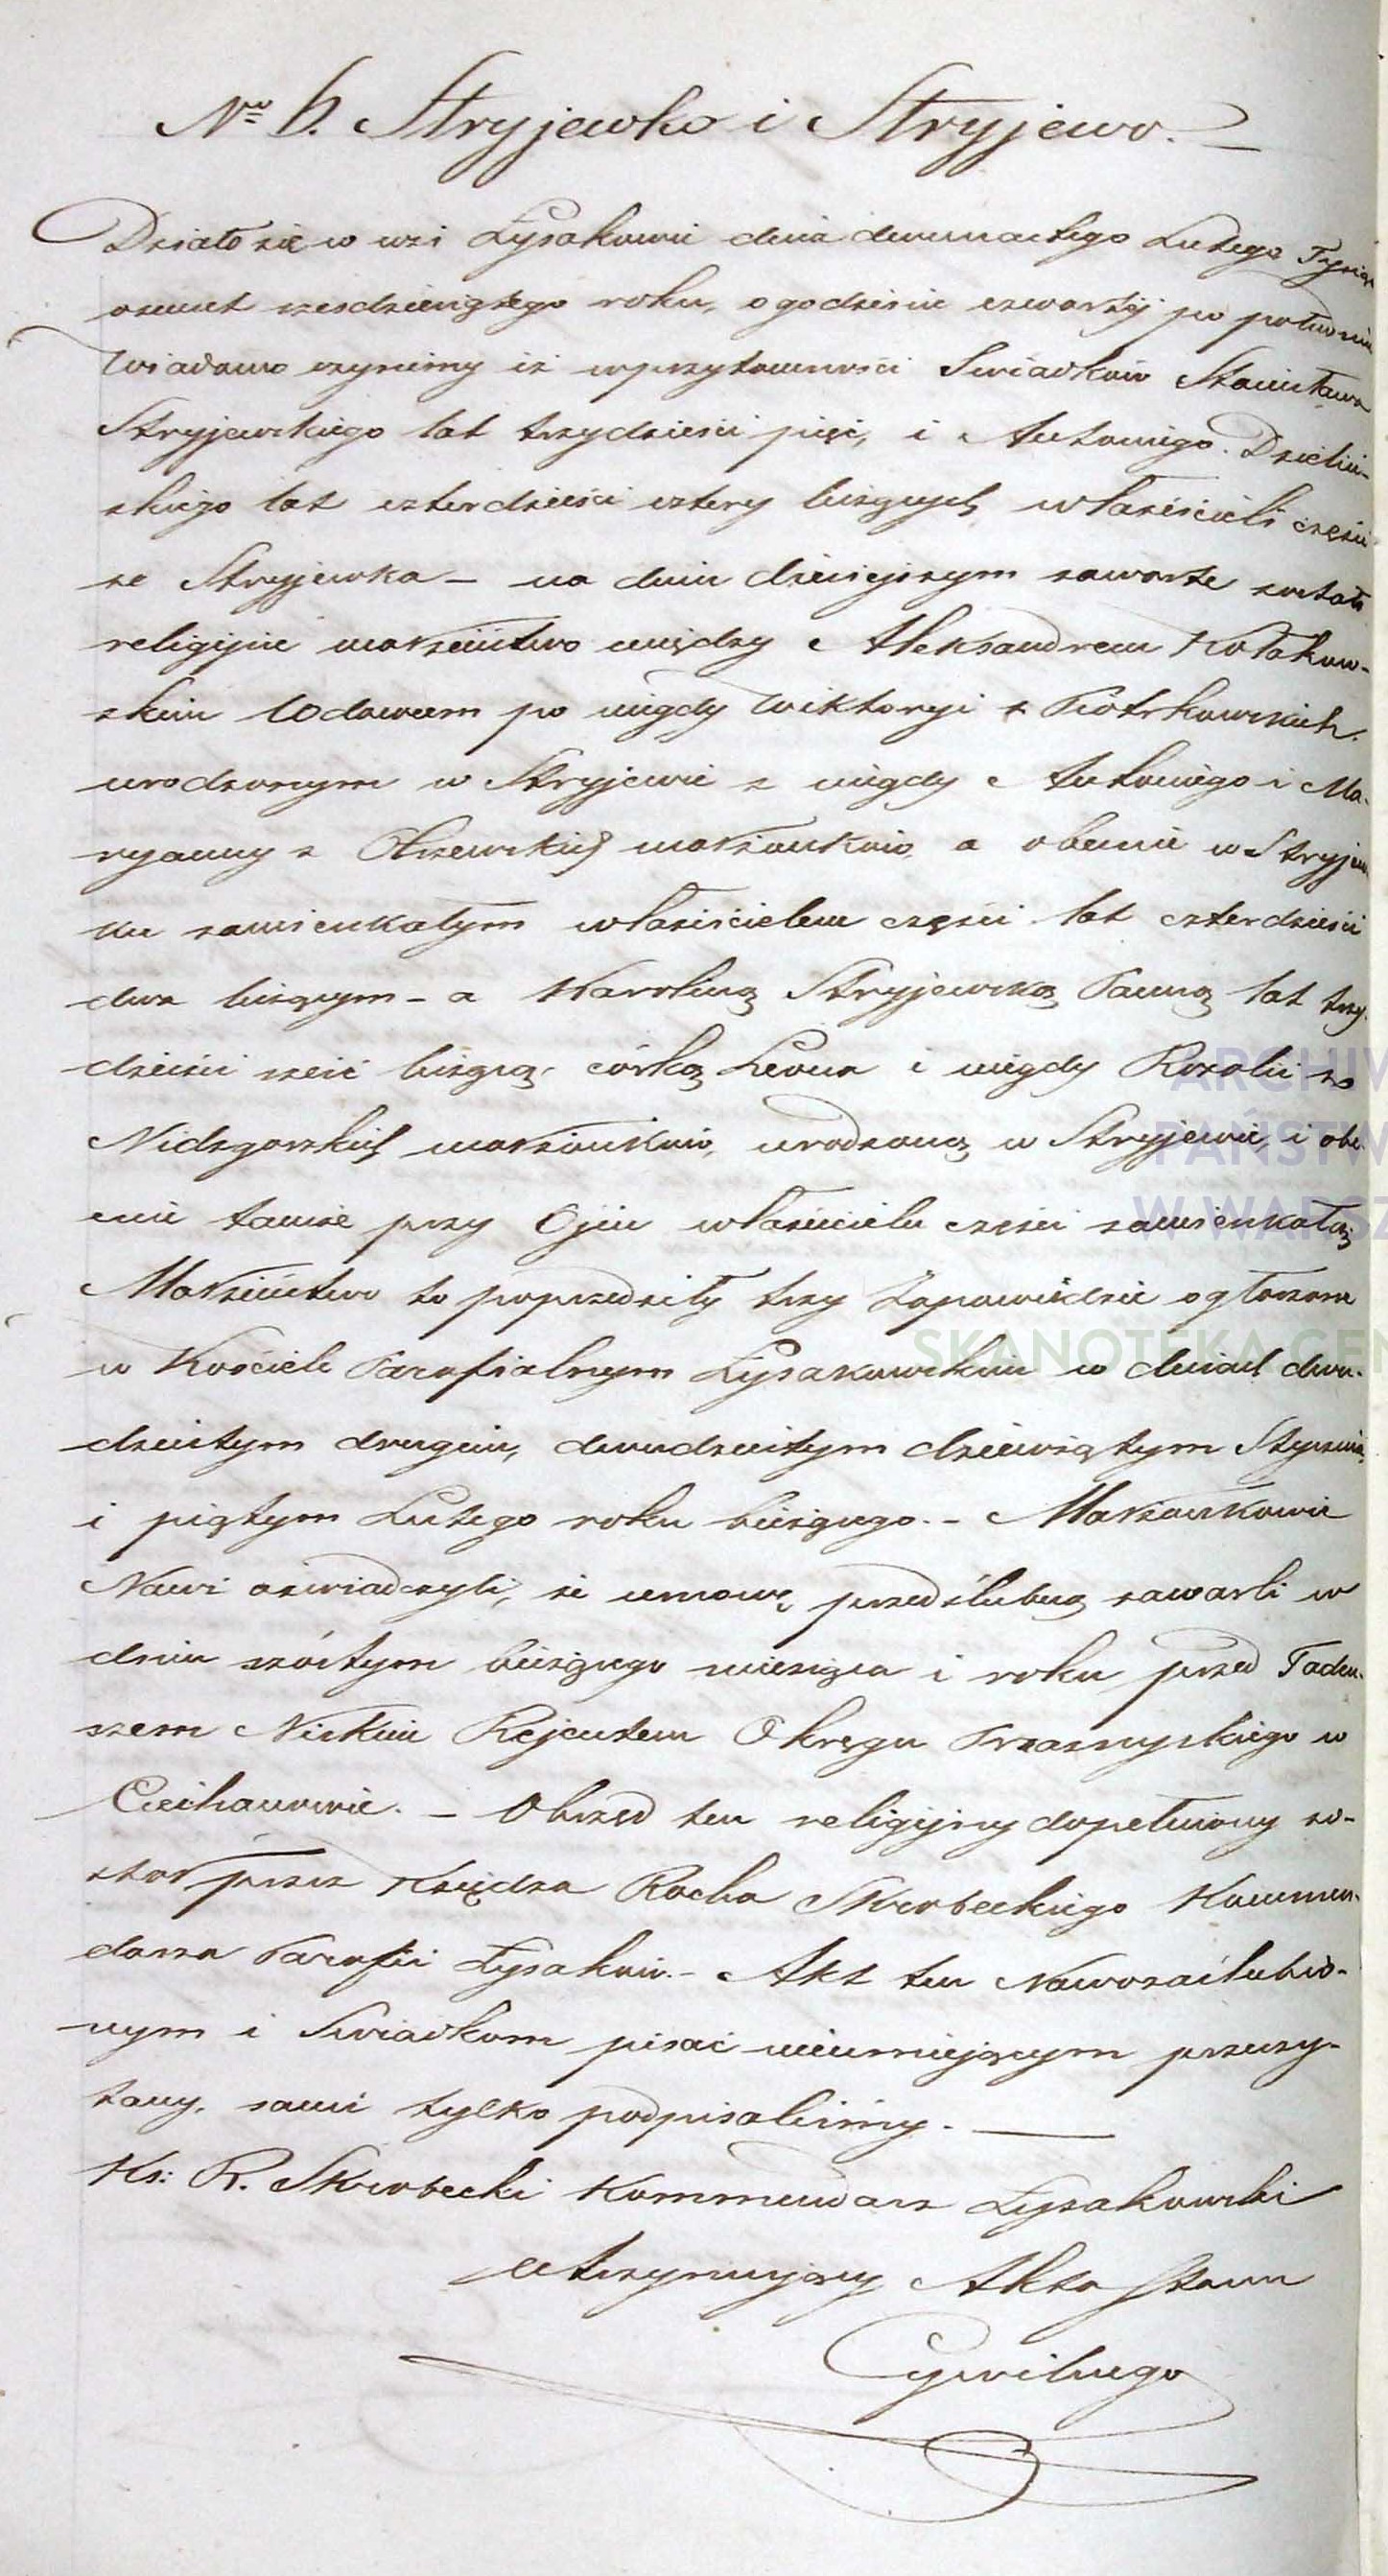 Nro 6. Stryjewko i Stryjewo. —
Działo się w wsi Łysakowie dnia dwunastego Lutego Tysiąc
osmset sześdziesiątego roku, o godzinie czwartéj po południu
Wiadomo czynimy iż w przytomności Swiadków Stanisława
Stryjewskiego lat trzydzieści pięć, i Antoniego Dzieliń-
skiego lat czterdzieści cztery liczących właścicieli części
ze Stryjewka — na dniu dzisiejszym zawarte zostało
religijne małżeństwo między Aleksandrem Kołakow-
skim Wdowcem po niegdy Wiktoryi z Piotrkowskich
urodzonym w Stryjewie z niegdy Antoniego i Ma-
ryanny z Olszewskich małżonków a obecnie w Stryjew-
ku zamieszkałym właścicielem części lat czterdzieści
dwa liczącym — a Karoliną Stryjewską Panną lat trzy-
dzieści sześć liczącą, córką Leona i niegdy Rozalii z
Nidzgorskich małżonków, urodzoną w Stryjewie, i obe-
cnie tamże przy Ojcu właścicielu części zamieszkałą
Małżeństwo to poprzedziły trzy Zapowiedzie ogłoszone
w Kościele Parafialnym Łysakowskim w dniach dwu-
dziestym drugim, dwudziestym dziewiątym Stycznia,
i piątym Lutego roku bieżącego. — Małżonkowie
Nowi oświadczyli, że umowę przedślubną zawarli w
dniu szóstym bieżącego miesiąca i roku przed Tadeu-
szem Rejentem Okręgu Przasnyskiego w
Ciechanowie. — Obrzęd ten religijny dopełniony zo-
stał przez Księdza Rocha Skrobeckiego Kommen-
darza Parafii Łysaków. — Akt ten Nowozaślubio-
nym i Swiadkom pisać nieumiejącym przeczy-
tany, sami tylko podpisaliśmy. —
Ks: R. Skrobecki Kommendarz Łysakowski
utrzymujący Akta Stanu
Cywilnego
ARCHIW
PAŃSTW
W WARSZ
SKANOTEKA GEN